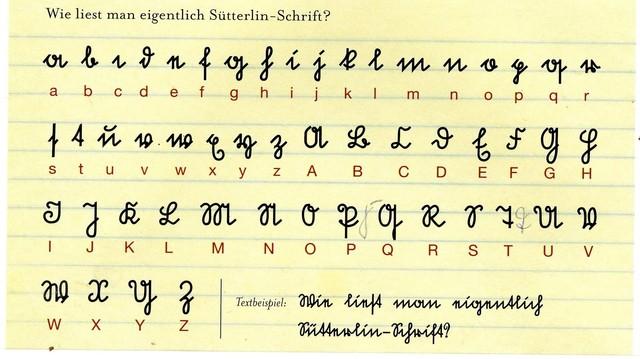 Wie liest man eigentlich Sütterlin-Schrift?
a b c d e f g h i j k l m n o p q r
a b c d e f g h i j k l m n o p q r
s t u v w x y z A B C D E F G H
s t u v w x y z A B C D E F G H
I J K L M N O P Q R S T U V
I J K L M N O P Q R S T U V
W X Y Z Textbeispiel: Wie liest man eigentlich
W X Y Z Sütterlin-Schrift?